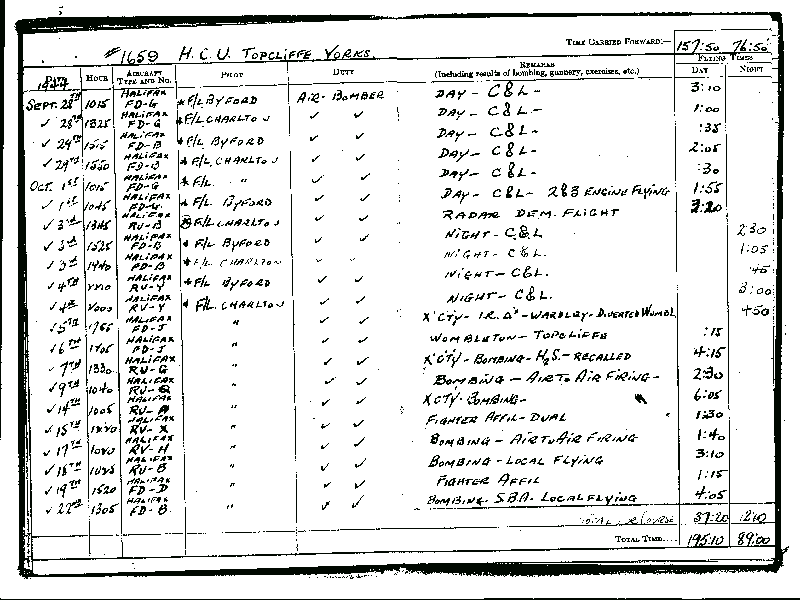 5
#1659 H.C.U. TOPCLIFFE YORKS. TIME CARRIED FORWARD:— 157:50 76:50
DATE 1944 HOUR AIRCRAFT TYPE AND NO. PILOT DUTY REMARKS (Including results of bombing, gunnery, exercises, etc.) FLYING TIMES DAY NIGHT
SEPT. 28TH 1015 HALIFAX FD-G * F/L BYFORD AIR-BOMBER DAY - C&L - 3:10
✓ 28TH 1325 HALIFAX FD-G * F/L CHARLTON ✓ ✓ DAY - C&L - 1:00
✓ 29TH HALIFAX FD-B * F/L BYFORD ✓ ✓ DAY - C&L - :35
✓ 29TH 1550 HALIFAX FD-B * F/L CHARLTON ✓ ✓ DAY - C&L - 2:05
OCT. 1ST 1015 HALIFAX FD-G * F/L " ✓ ✓ DAY - C&L - :30
✓ 1ST 1045 HALIFAX * F/L BYFORD ✓ ✓ DAY - C&L - 2&3 ENGINE FLYING 1:55
✓ 3RD 1345 HALIFAX RU-B F/L CHARLTON ✓ ✓ RADAR DEM. FLIGHT
✓ 3RD 1525 HALIFAX FD-B * F/L BYFORD ✓ ✓ NIGHT - C&L 2:30
✓ 3RD 1940 HALIFAX FD-B * F/L CHARLTON ✓ ✓ NIGHT - C&L. 1:05
✓ 4TH HALIFAX RV-Y * F/L BYFORD ✓ ✓ NIGHT - C&L. :45
✓ 4TH HALIFAX RV-Y * F/L CHARLTON ✓ ✓ NIGHT - C&L. 3:00
✓ 5TH HALIFAX FD-J " ✓ ✓ X'CTY - I.R. - WARDLEY - DIVERTED WOMBL. 4:50
✓ 6TH HALIFAX FD-J " ✓ ✓ WOMBLETON - TOPCLIFFE :15
✓ 7TH 1330 HALIFAX RU-G " ✓ ✓ X'CTY - BOMBING - H2S. - RECALLED 4:15
✓ 9TH 1040 HALIFAX " ✓ ✓ BOMBING - AIR TO AIR FIRING - 2:30
✓ 14TH 1005 HALIFAX " ✓ ✓ X'CTY - BOMBING - 6:05
✓ 15TH HALIFAX RV-X " ✓ ✓ FIGHTER AFFIL - DUAL 1:30
✓ 17TH HALIFAX RV-H " ✓ ✓ BOMBING - AIR TO AIR FIRING 1:40
✓ 18TH HALIFAX RU-B " ✓ ✓ BOMBING - LOCAL FLYING 3:10
✓ 19TH 1520 HALIFAX FD-D " ✓ ✓ FIGHTER AFFIL 1:15
✓ 22ND 1305 HALIFAX FD-B " ✓ ✓ BOMBING. S.B.A. - LOCAL FLYING 4:05
TOTAL COURSE 37:20 12:10
TOTAL TIME.... 195:10 89:00